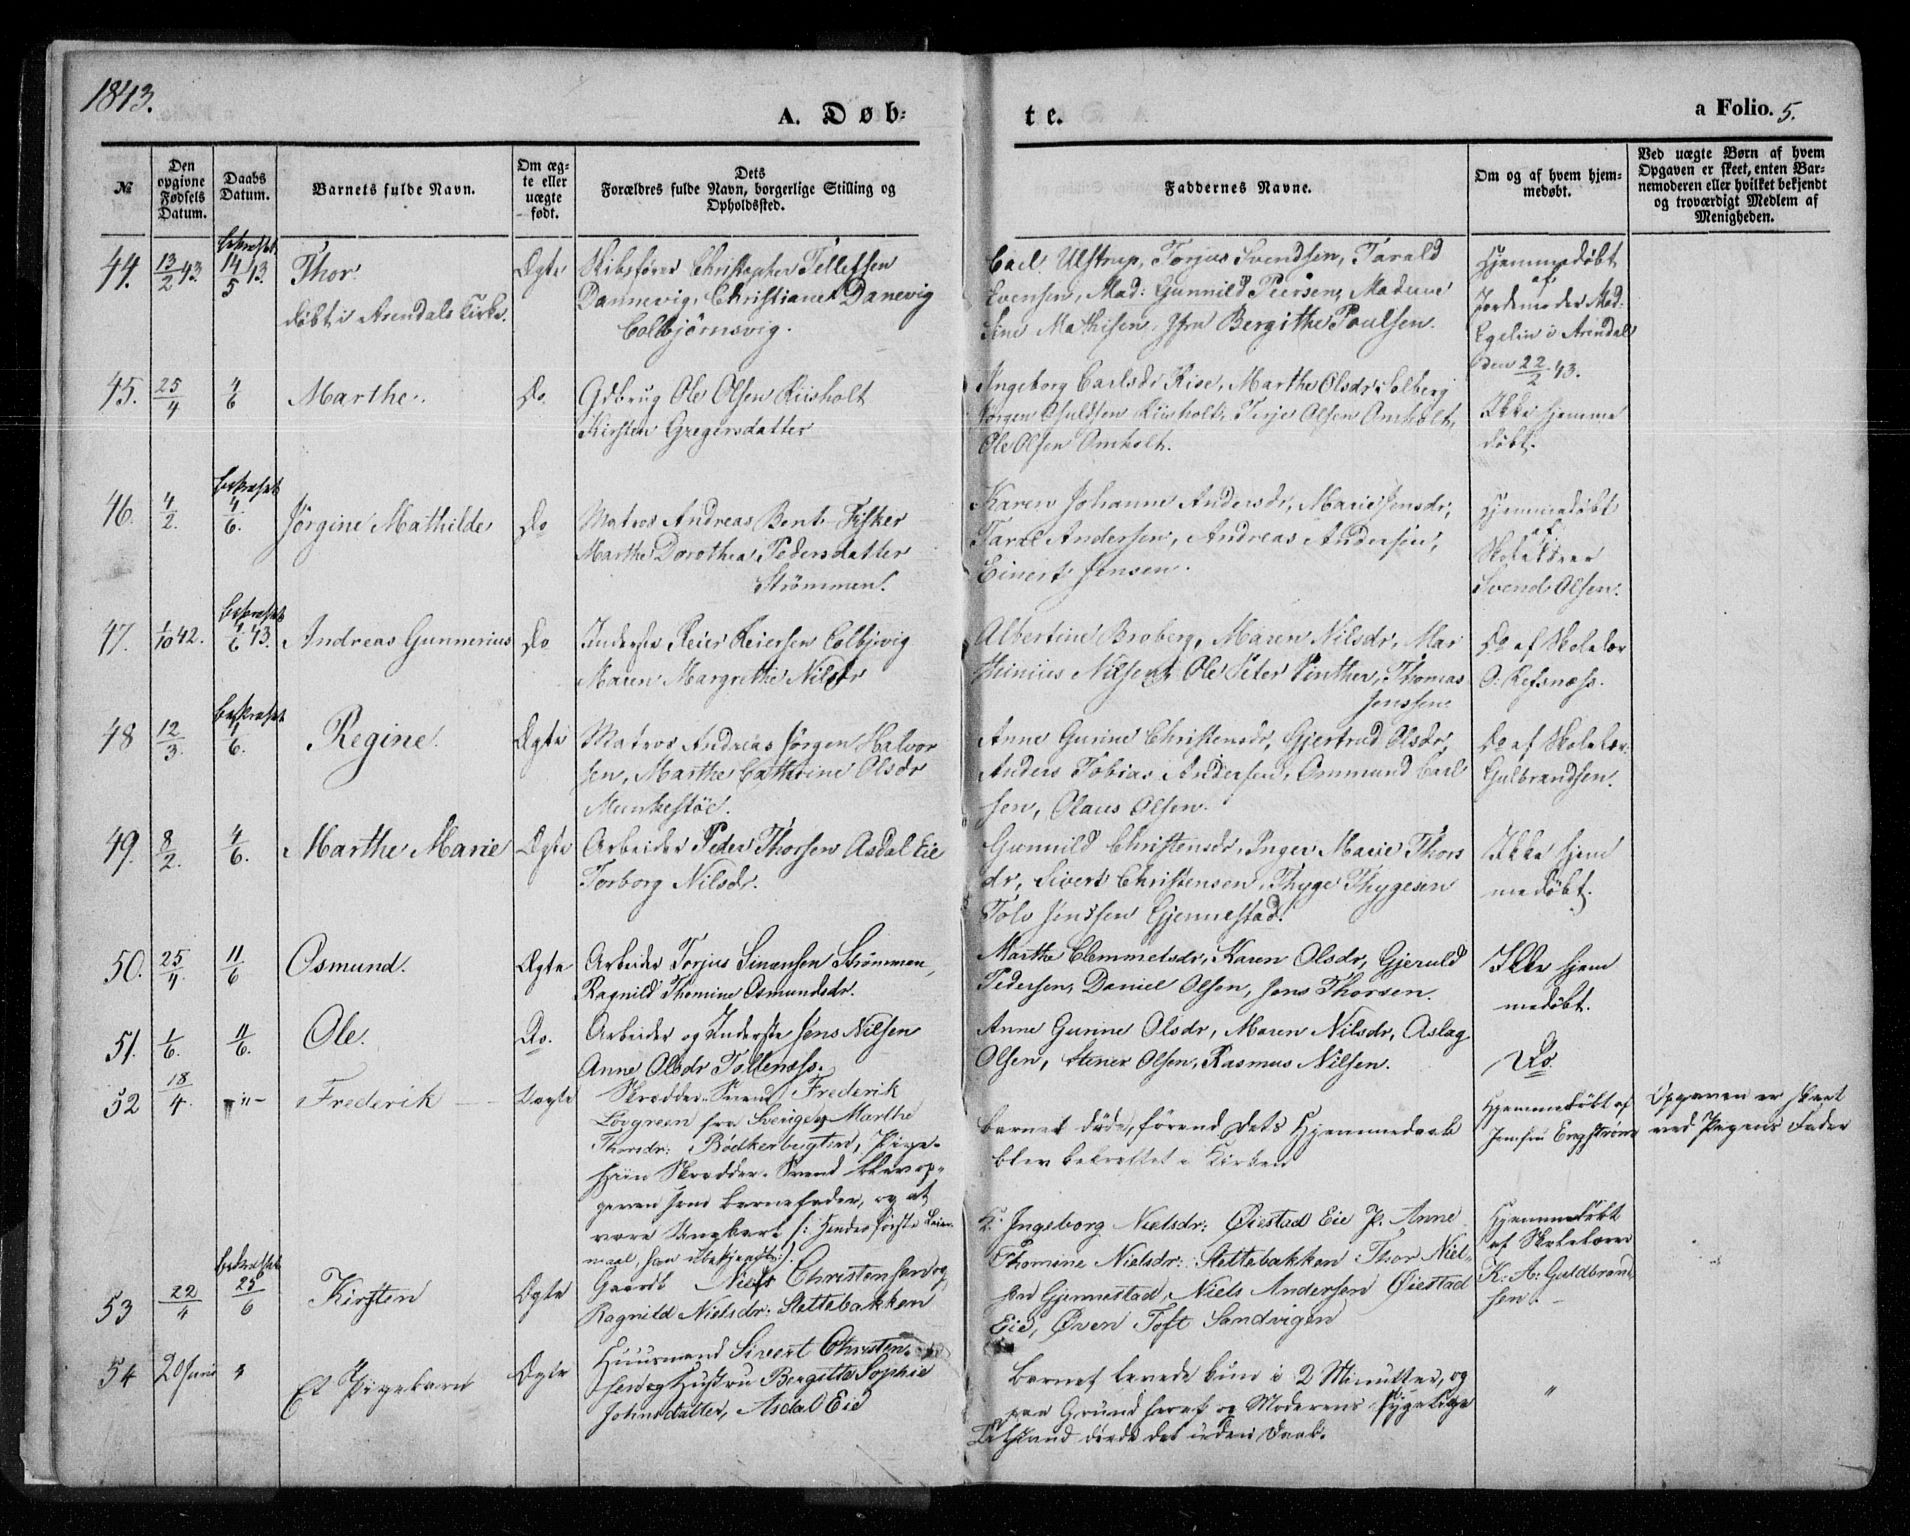 1843.
A. Døb-
te.
a Folio. 5.
№
Den opgivne Fødsels Datum.
Daabs Datum.
Barnets fulde Navn.
Om ægte eller uægte født.
Dets Forældres fulde Navn, borgerlige Stilling og Opholdssted.
Faddernes Navne.
Om og af hvem hjemmedøbt.
Ved uægte Børn af hvem Opgaven er skeet, enten Barnemoderen eller hvilket bekjendt og troværdigt Medlem af Menigheden.
44. 13/2 43. bekræftet 14/5 43. Thor Ægte Skibsfører Christopher Tellefsen
døbt i Arendals Kirke. Dannevig, Christiane Danevig
Colbjørnsvig.
Carl Ulstrup, Torjus Svendsen, Tarald
Evensen, Mad: Gunnild Peersen, Madame
Sine Mathisen, Jfru Bergithe Poulsen.
Hjemmedøbt
af
Jordemoder Mad.
Egelin i Arendal
den 22/2 43.
45. 25/4 4/6 Marthe. Do Gdbrug Ole Olsen Riisholt
Kirsten Gregersdatter
Ingeborg Carlsdr Rise, Marthe Olsdr Solberg
Jørgen Osuldsen Riisholt, Terje Olsen Omholt,
Ole Olsen Omholt.
Ikke hjemme
døbt.
46. 4/2. bekræftet 4/6. Jørgine Mathilde Do Matros Andreas Bent. Fisker
Marthe Dorothea Pedersdatter
Strømmen.
Karen Johanne Andersdr, Marie Jensdr,
Taral Andersen, Andreas Andersen,
Einert Jensen.
Hjemmedøbt
af
Skolelærer
Svend Olsen.
47. 1/10 42. bekræftet 4/6 43. Andreas Gunnerius Do Inderste Reier Reiersen Colbjvig
Maren Margrethe Nilsdr
Albertine Broberg, Maren Nilsdr, Mar
thinius Nilsen, Ole Peter Vinther, Thomas
Jenssen.
Do af Skolelær
O. Refsnæss.
48 12/3. bekræftet 4/6. Regine. Ægte Matros Andreas Jørgen Halvor
sen, Marthe Cathrine Olsdr
Munkestøe.
Anne Gurine Christensdr, Gjertrud Olsdr,
Anders Tobias Andersen, Ommund Carl
sen, Olaus Olsen.
Do af Skolelær.
Gulbrandsen.
49. 8/2. 4/6. Marthe Marie Ægte Arbeider Peder Thorsen Asdal Eie
Torborg Nilsdr.
Gunnild Christensdr, Inger Marie Thors
dr, Sivert Christensen, Thyge Thygesen
Tolv Jenssen Gjennestad.
Ikke hjem
medøbt.
50. 25/4. 11/6 Osmund. Ægte Arbeider Torjus Simensen Strømmen,
Ragnild Thomine Osmundsdr.
Marthe Clemmetsdr, Karen Olsdr, Gjeruld
Pedersen, Daniel Olsen, Jens Thorsen.
Ikke hjem
medøbt.
51. 1/6. 11/6. Ole. Do. Arbeider og Inderste Jens Nilsen
Anne Olsdr Tollenæss.
Anne Gurine Olsdr, Maren Nilsdr, Aslag
Olsen, Stener Olsen, Rasmus Nilsen.
Do.
52 18/4. -"- Frederik Uægte Skrædder-Svend Frederik
Løvgreen fra Sverige og Marthe
Thorsdr: Bødkerbugten, Pige.
Hiin Skrædder-Svend blev op-
given som Barnefader, og at
være Ungkarl /: Hendes første Leier
maal, han ubekjendt:/.
Barnet døde, førend dets Hjemmedaab
blev bekræftet i Kirken
Hjemmedøbt af
Jomfru Engstrøm
Opgaven er skeet
ved Pigens Fader
53 22/4 bekræftet 25/6 Kirsten Ægte Gaardb Niels Christensen og
Ragnild Nielsdr: Slettebakken
K. Ingeborg Nielsdr: Øiestad Eie P. Anne
Thomine Nielsdr: Slettebakken: Thor Niel-
sen Gjennestad, Niels Andersen Øiestad
Eie, Øven Toft Sandvigen
Hjemmedøbt
af Skolelærer
K: A: Guldbrand-
sen.
54 20 Juni " Et Pigebarn Ægte Huusmand Sivert Christen-
sen og Hustru Bergitte Sophie
Johnsdatter, Asdal Eie
Barnet levede kun i 2 Minutter, og
paa Grund heraf og Moderens sygelige
Tilstand døde det uden Daab.
"